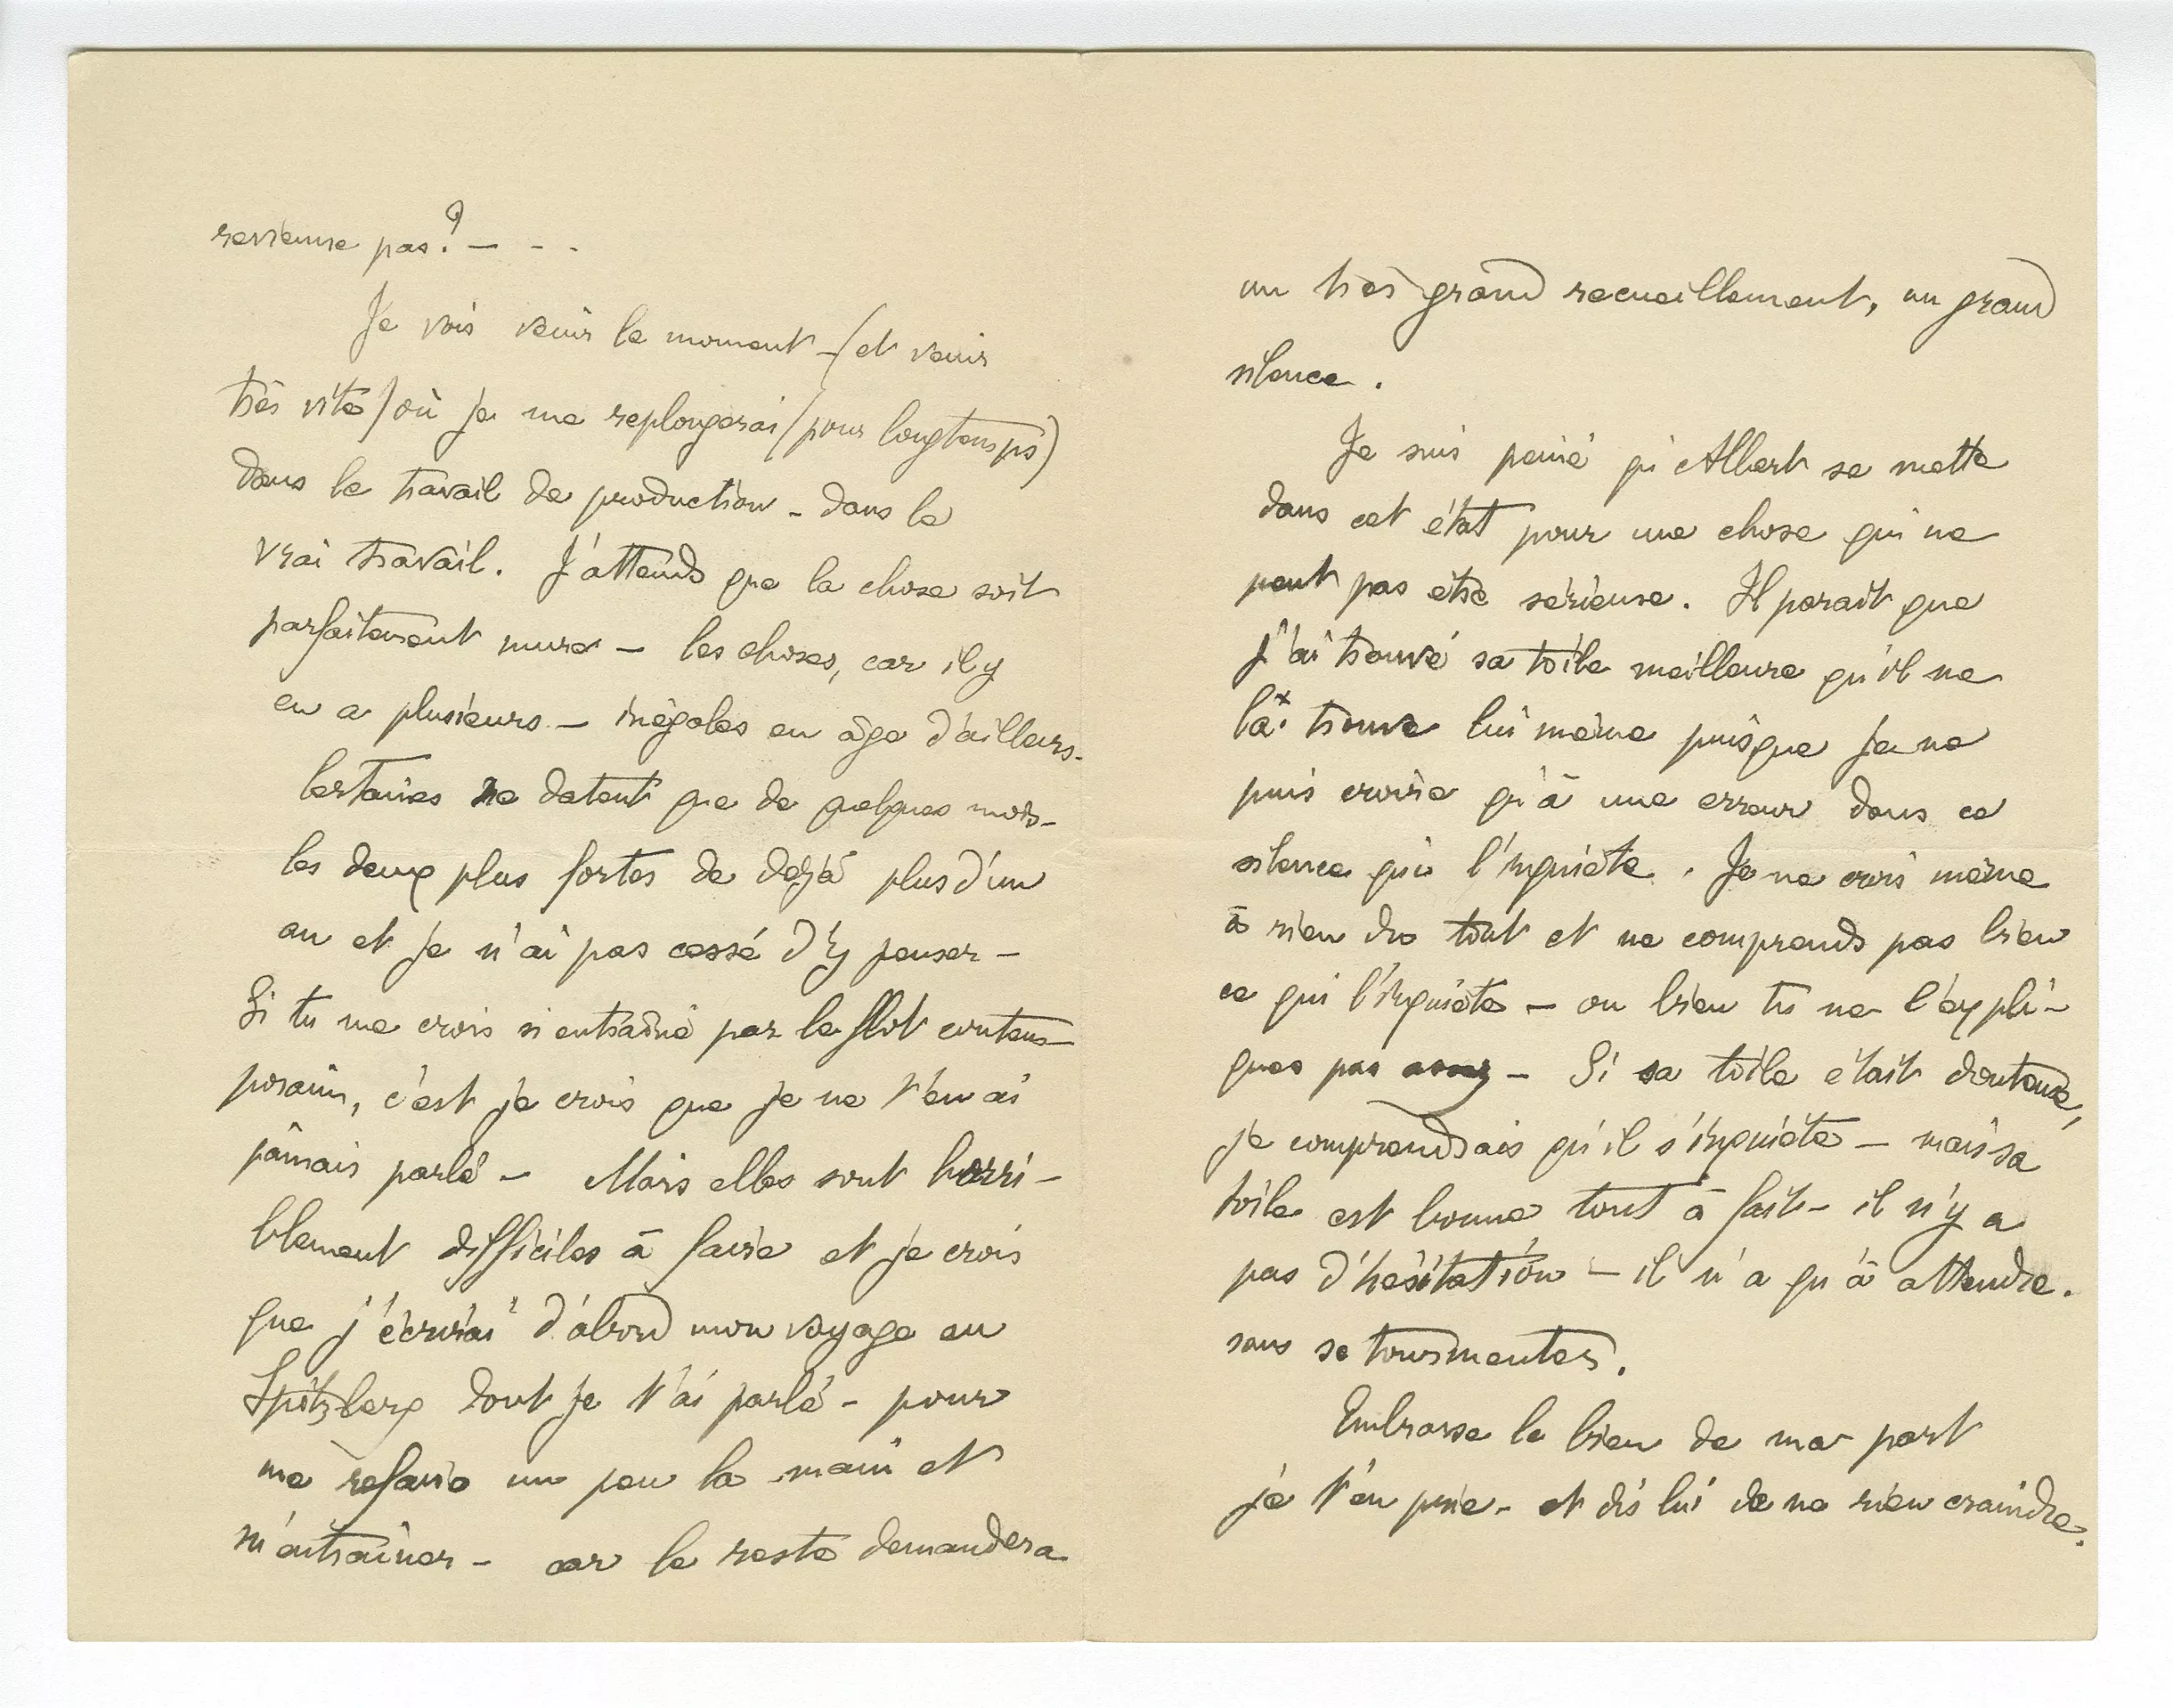 revienne pas ? — - -
Je vois venir le moment - (et venir
très vite) où je me replongerai (pour longtemps)
dans le travail de production - dans le
vrai travail. J'attends que la chose soit
parfaitement mure — les choses, car il y
en a plusieurs - inégales en âge d'ailleurs -
Certaines ne datent que de quelques mois -
les deux plus fortes de déjà plus d'un
an et je n'ai pas cessé d'y penser -
Si tu me crois si entraîné par le flot contem-
porain, c'est je crois que je ne t'en ai
jamais parlé - Mais elles sont horri-
blement difficiles à faire et je crois
que j'écrirai d'abord mon voyage au
Spitzberg dont je t'ai parlé - pour
me refaire un peu la main et
m'entraîner - car le reste demandera
un très grand recueillement, un grand
silence.
Je suis peiné qu'Albert se mette
dans cet état pour une chose qui ne
peut pas être sérieuse. Il parait que
j'ai trouvé sa toile meilleure qu'il ne
la trouve lui même puisque je ne
puis croire qu'à une erreur dans ce
silence qui l'inquiète. Je ne crois même
à rien du tout et ne comprends pas bien
ce qui l'inquiète - ou bien tu ne l'expli-
ques pas assez - Si sa toile était douteuse,
je comprendrais qu'il s'inquiète - mais sa
toile est bonne tout à fait - il n'y a
pas d'hésitation - il n'a qu'à attendre.
sans se tourmenter.
Embrasse le bien de ma part
je t'en prie - et dis lui de ne rien craindre.